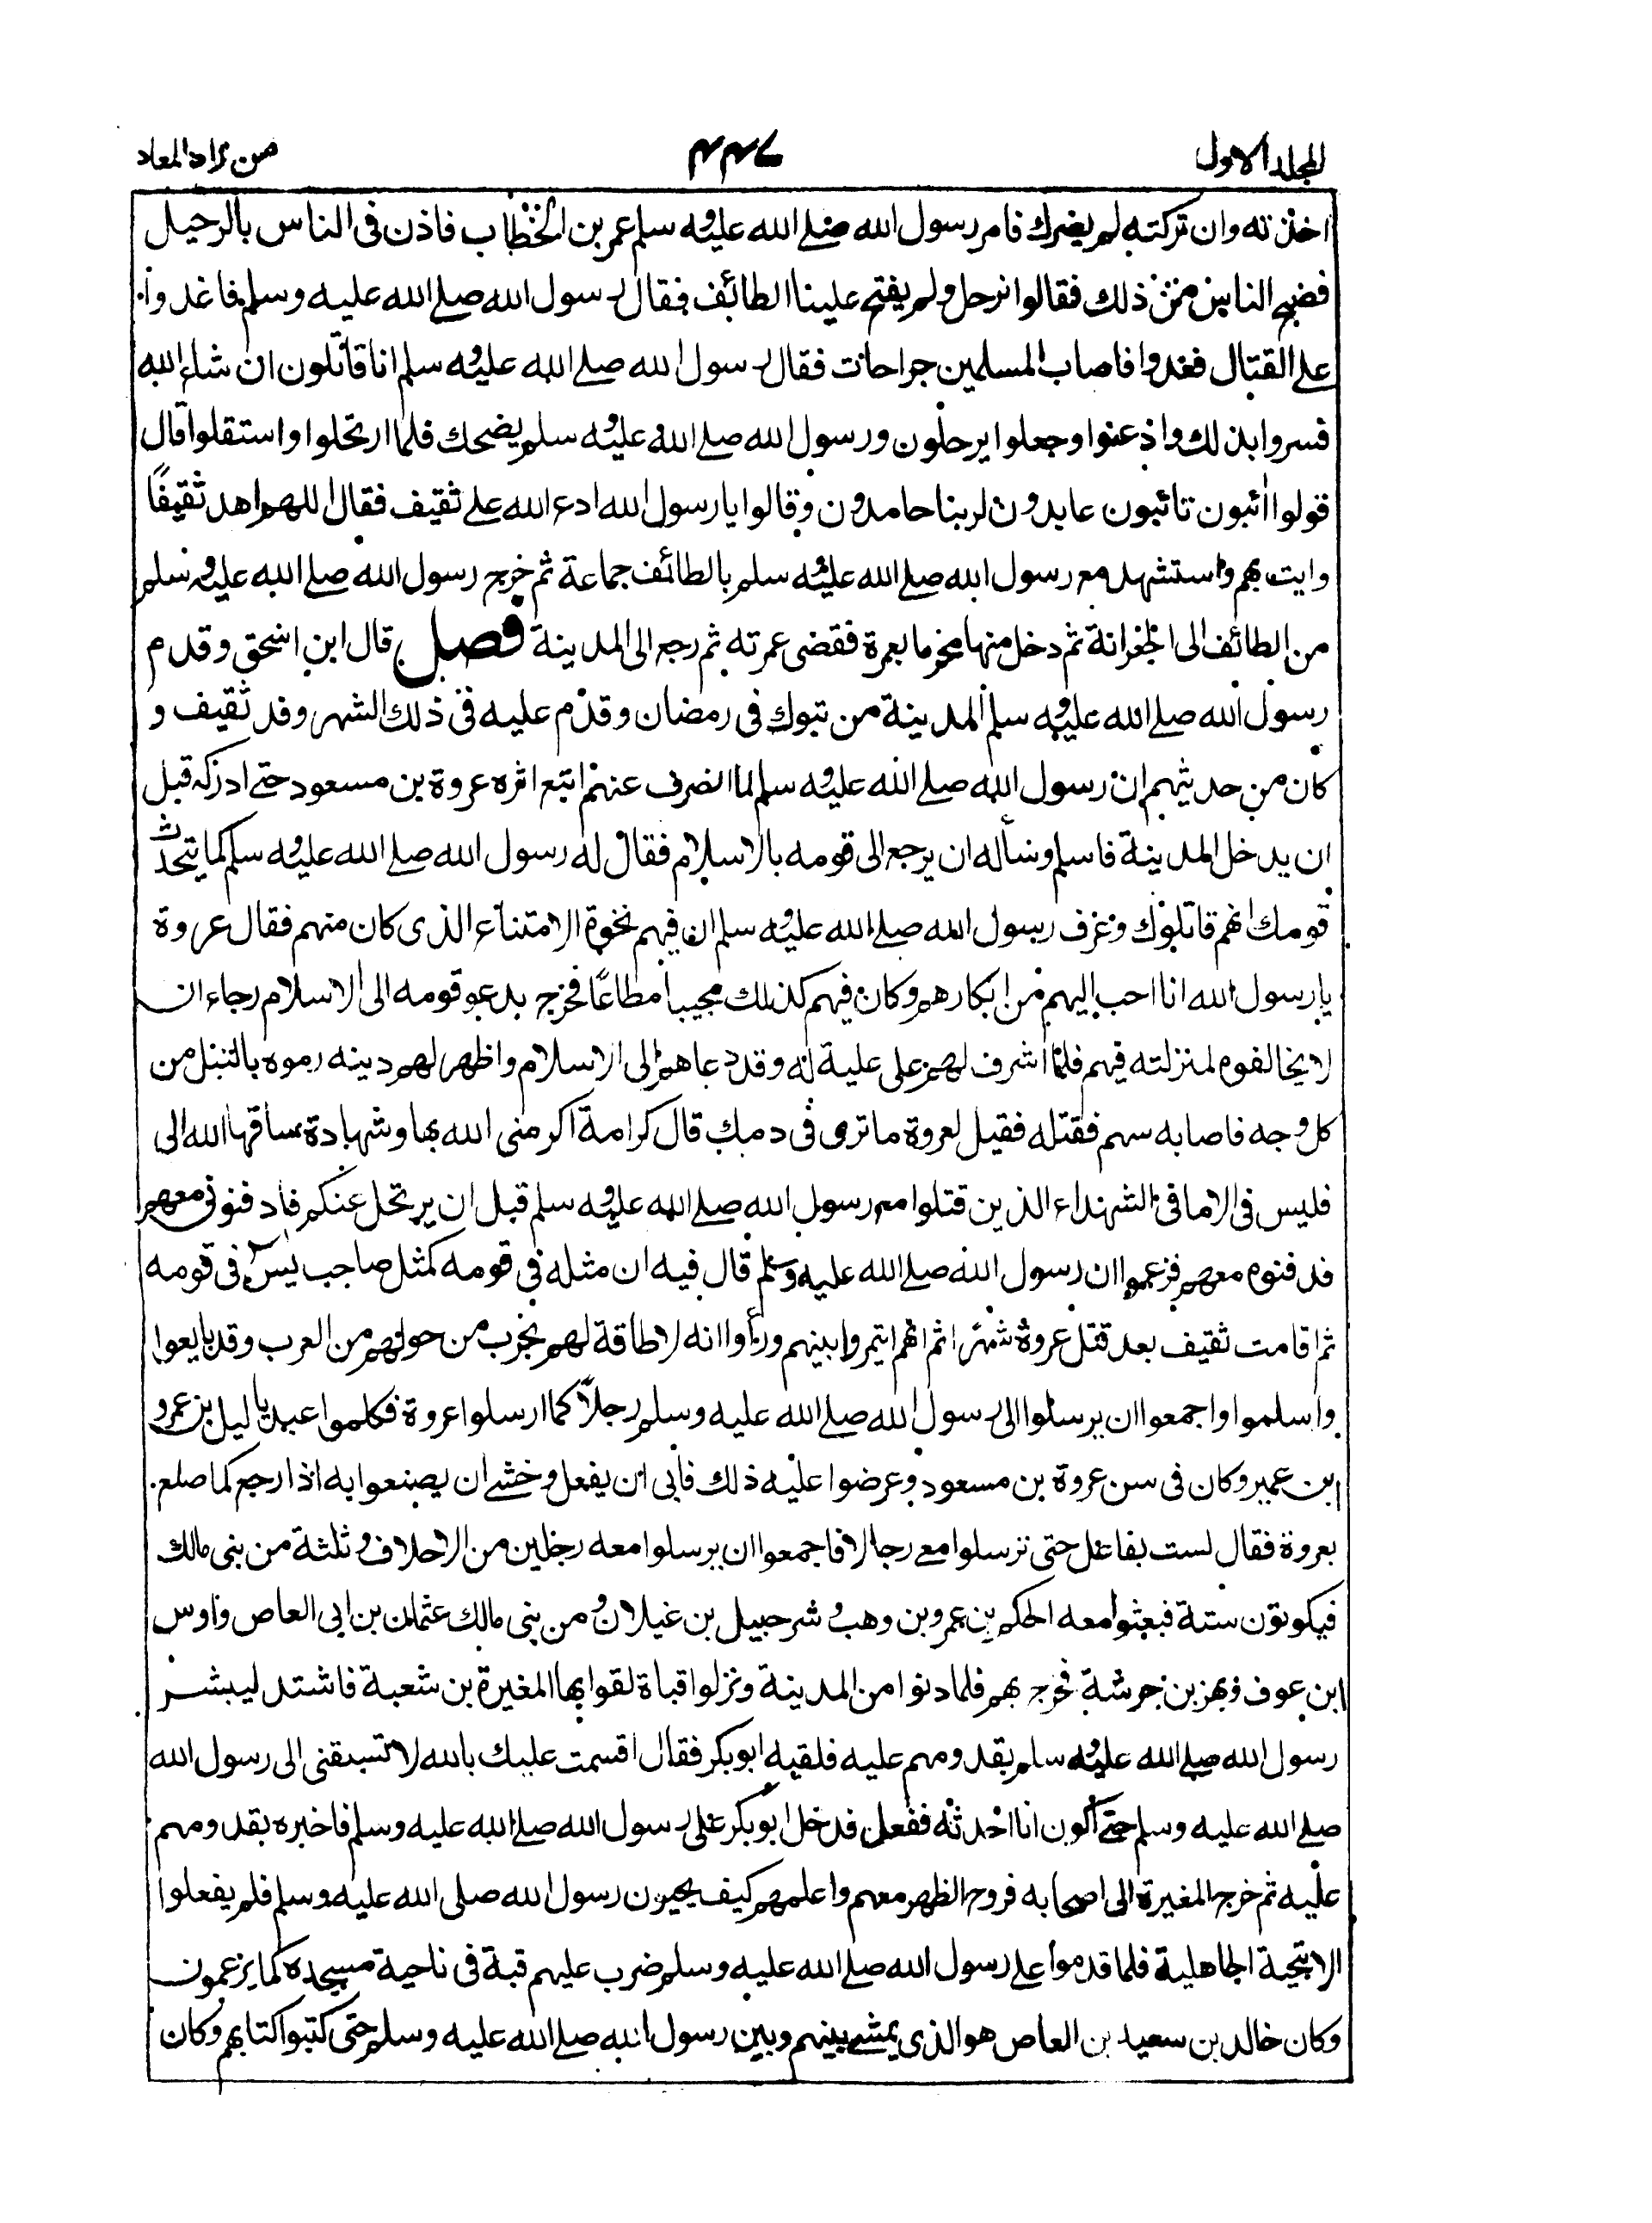 المجلد الاول ٤٤٦ من زاد المعاد
اخذته وان تركته لم يضرك فامر رسول الله صلے الله عليه وسلم عمر بن الخطاب فاذن فى الناس بالرحيل
فضج الناس من ذلك فقالوا نرحل ولم يفتح علينا الطائف فقال رسول الله صلے الله عليه وسلم فاغدوا
علے القتال فغدوا فاصاب المسلمين جراحات فقال رسول الله صلے الله عليه وسلم انا قافلون ان شاء الله
فسروا بذلك واذعنوا وجعلوا يرحلون ورسول الله صلے الله عليه وسلم يضحك فلما ارتحلوا واستقلوا قال
قولوا ائبون تائبون عابدون لربنا حامدون وقالوا يا رسول الله ادع الله علے ثقيف فقال اللهم اهد ثقيفًا
وايت بهم واستشهد مع رسول الله صلے الله عليه وسلم بالطائف جماعة ثم خرج رسول الله صلے الله عليه وسلم
من الطائف الى الجعرانة ثم دخل منها محرما بعمرة فقضى عمرته ثم رجع الى المدينة فصل قال ابن اسحق وقدم
رسول الله صلے الله عليه وسلم المدينة من تبوك فى رمضان وقدم عليه فى ذلك الشهر وفد ثقيف و
كان من حديثهم ان رسول الله صلے الله عليه وسلم لما انصرف عنهم اتبع اثره عروة بن مسعود حتے ادركه قبل
ان يدخل المدينة فاسلم وسأله ان يرجع الى قومه بالاسلام فقال له رسول الله صلے الله عليه وسلم كما يتحدث
قومك انهم قاتلوك وعرف رسول الله صلے الله عليه وسلم ان فيهم نخوة الامتناع الذى كان منهم فقال عروة
يا رسول الله انا احب اليهم من ابكارهم وكان فيهم كذلك محببا مطاعًا فخرج يدعو قومه الى الاسلام رجاء ان
لا يخالفوه لمنزلته فيهم فلما اشرف لهم على علية له وقد دعاهم الى الاسلام واظهر لهم دينه رموه بالنبل من
كل وجه فاصابه سهم فقتله فقيل لعروة ما ترى فى دمك قال كرامة اكرمنى الله بها وشهادة ساقها الله الى
فليس فى الا ما فى الشهداء الذين قتلوا مع رسول الله صلے الله عليه وسلم قبل ان يرتحل عنكم فادفنونى معهم
فدفنوه معهم فزعموا ان رسول الله صلے الله عليه وسلم قال فيه ان مثله فى قومه كمثل صاحب يس فى قومه
ثم اقامت ثقيف بعد قتل عروة شهرا ثم انهم ايتمروا بينهم ورأوا انه لا طاقة لهم بحرب من حولهم من العرب وقد بايعوا
واسلموا واجمعوا ان يرسلوا الى رسول الله صلے الله عليه وسلم رجلاً كما ارسلوا عروة فكلموا عبد ياليل بن عمرو
ابن عمير وكان فى سن عروة بن مسعود وعرضوا عليه ذلك فأبى ان يفعل وخشے ان يصنعوا به اذا رجع كما صلع
بعروة فقال لست بفاعل حتى ترسلوا معى رجالا فاجمعوا ان يرسلوا معه رجلين من الاحلاف وثلثة من بنى مالك
فيكونون ستة فبعثوا معه الحكم بن عمرو بن وهب وشرحبيل بن غيلان ومن بنى مالك عثمان بن ابى العاص واوس
ابن عوف وبهز بن جرشة فخرج بهم فلما دنوا من المدينة ونزلوا قباة لقوا بها المغيرة بن شعبة فاشتد ليبشر
رسول الله صلے الله عليه وسلم بقدومهم عليه فلقيه ابو بكر فقال اقسمت عليك بالله لا تسبقنى الى رسول الله
صلے الله عليه وسلم حتے اكون انا احدثه ففعل فدخل ابو بكر على رسول الله صلے الله عليه وسلم فاخبره بقدومهم
عليه ثم خرج المغيرة الى اصحابه فروح الظهر معهم واعلمهم كيف يحيون رسول الله صلى الله عليه وسلم فلم يفعلوا
الا بتحية الجاهلية فلما قدموا علے رسول الله صلے الله عليه وسلم ضرب عليهم قبة فى ناحية مسجده كما يزعمون
وكان خالد بن سعيد بن العاص هو الذى يمشے بينهم وبين رسول الله صلے الله عليه وسلم حتى كتبوا كتابهم وكان